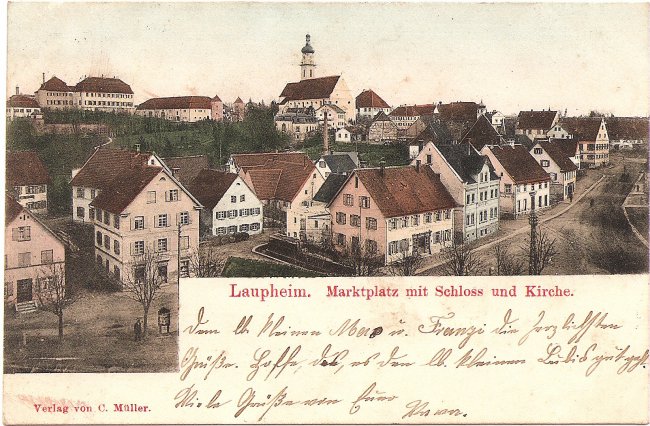 Laupheim. Marktplatz mit Schloss und Kirche.
Den lb. kleinen Max u. Franzi die herzlichsten
Grüße. Hoffe, daß es den lb. kleinen Lubis gut geht.
Viele Grüße von Euer
Verlag von C. Müller.